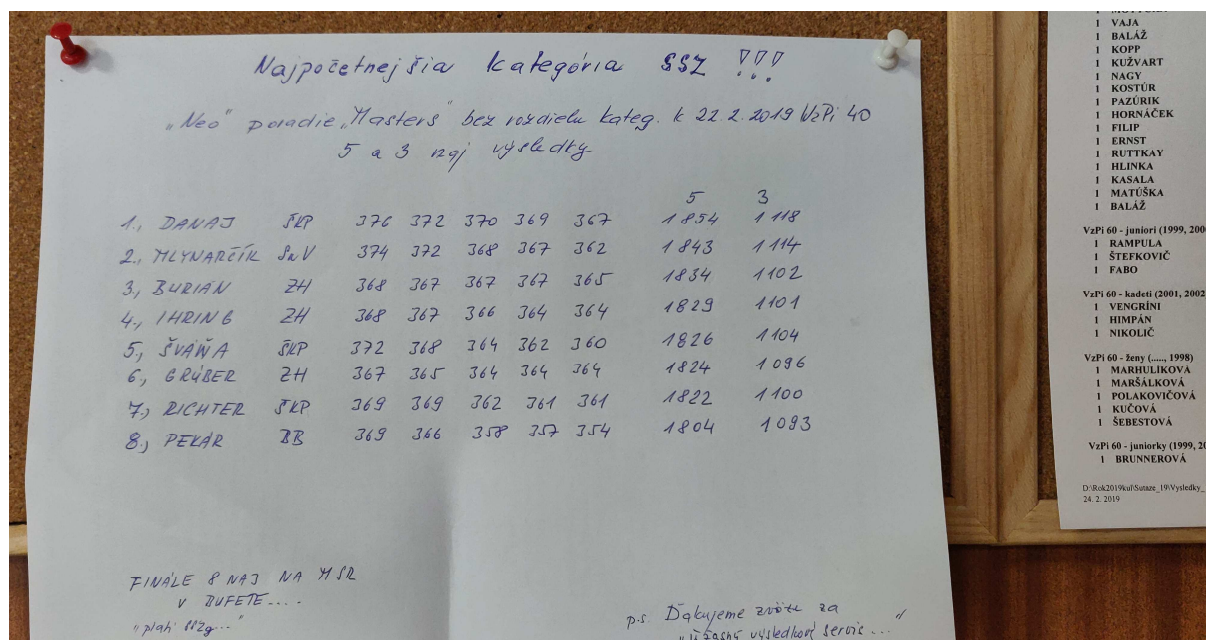 Najpočetnejšia kategória SSZ !!!
"Neo" poradie "Masters" bez rozdielu kateg. k 22.2.2019 VzPi 40
5 a 3 naj výsledky
5 3
1., DANAJ ŠKP 376 372 370 369 367 1854 1118
2., MLYNARČÍK SNV 374 372 368 367 362 1843 1114
3., BURIÁN ZH 368 367 367 367 365 1834 1102
4., IHRING ZH 368 367 366 364 364 1829 1101
5., ŠVÁŇA ŠKP 372 368 364 362 360 1826 1104
6., GRÚBER ZH 367 365 364 364 364 1824 1096
7., RICHTER ŠKP 369 369 362 361 361 1822 1100
8., PEKÁR BB 369 366 358 357 354 1804 1093
FINÁLE 8 NAJ NA MSR
V BUFETE....
"platí SSZ..."
p.s. Ďakujeme zvöte za
"úžasný výsledkový servis..."
1 VAJA
1 BALÁŽ
1 KOPP
1 KUŽVART
1 NAGY
1 KOSTÚR
1 PAZÚRIK
1 HORNÁČEK
1 FILIP
1 ERNST
1 RUTTKAY
1 HLINKA
1 KASALA
1 MATÚŠKA
1 BALÁŽ
VzPi 60 - juniori (1999, 200
1 RAMPULA
1 ŠTEFKOVIČ
1 FABO
VzPi 60 - kadeti (2001, 2002
1 VENGRÍNI
1 HIMPÁN
1 NIKOLIČ
VzPi 60 - ženy (....., 1998)
1 MARHULÍKOVÁ
1 MARŠÁLKOVÁ
1 POLAKOVIČOVÁ
1 KUČOVÁ
1 ŠEBESTOVÁ
VzPi 60 - juniorky (1999, 20
1 BRUNNEROVÁ
D:\Rok2019kuf\Sutaze_19\Vysledky_
24. 2. 2019